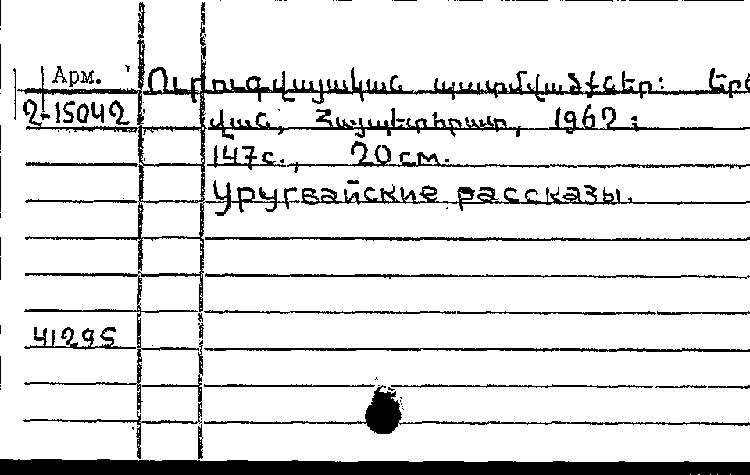 Арм. Ուրուգվայական պատմվածքներ: Երե
2-15042 վան, Հայպետհրատ, 1962:
147с., 20 см.
Уругвайские рассказы.
41295